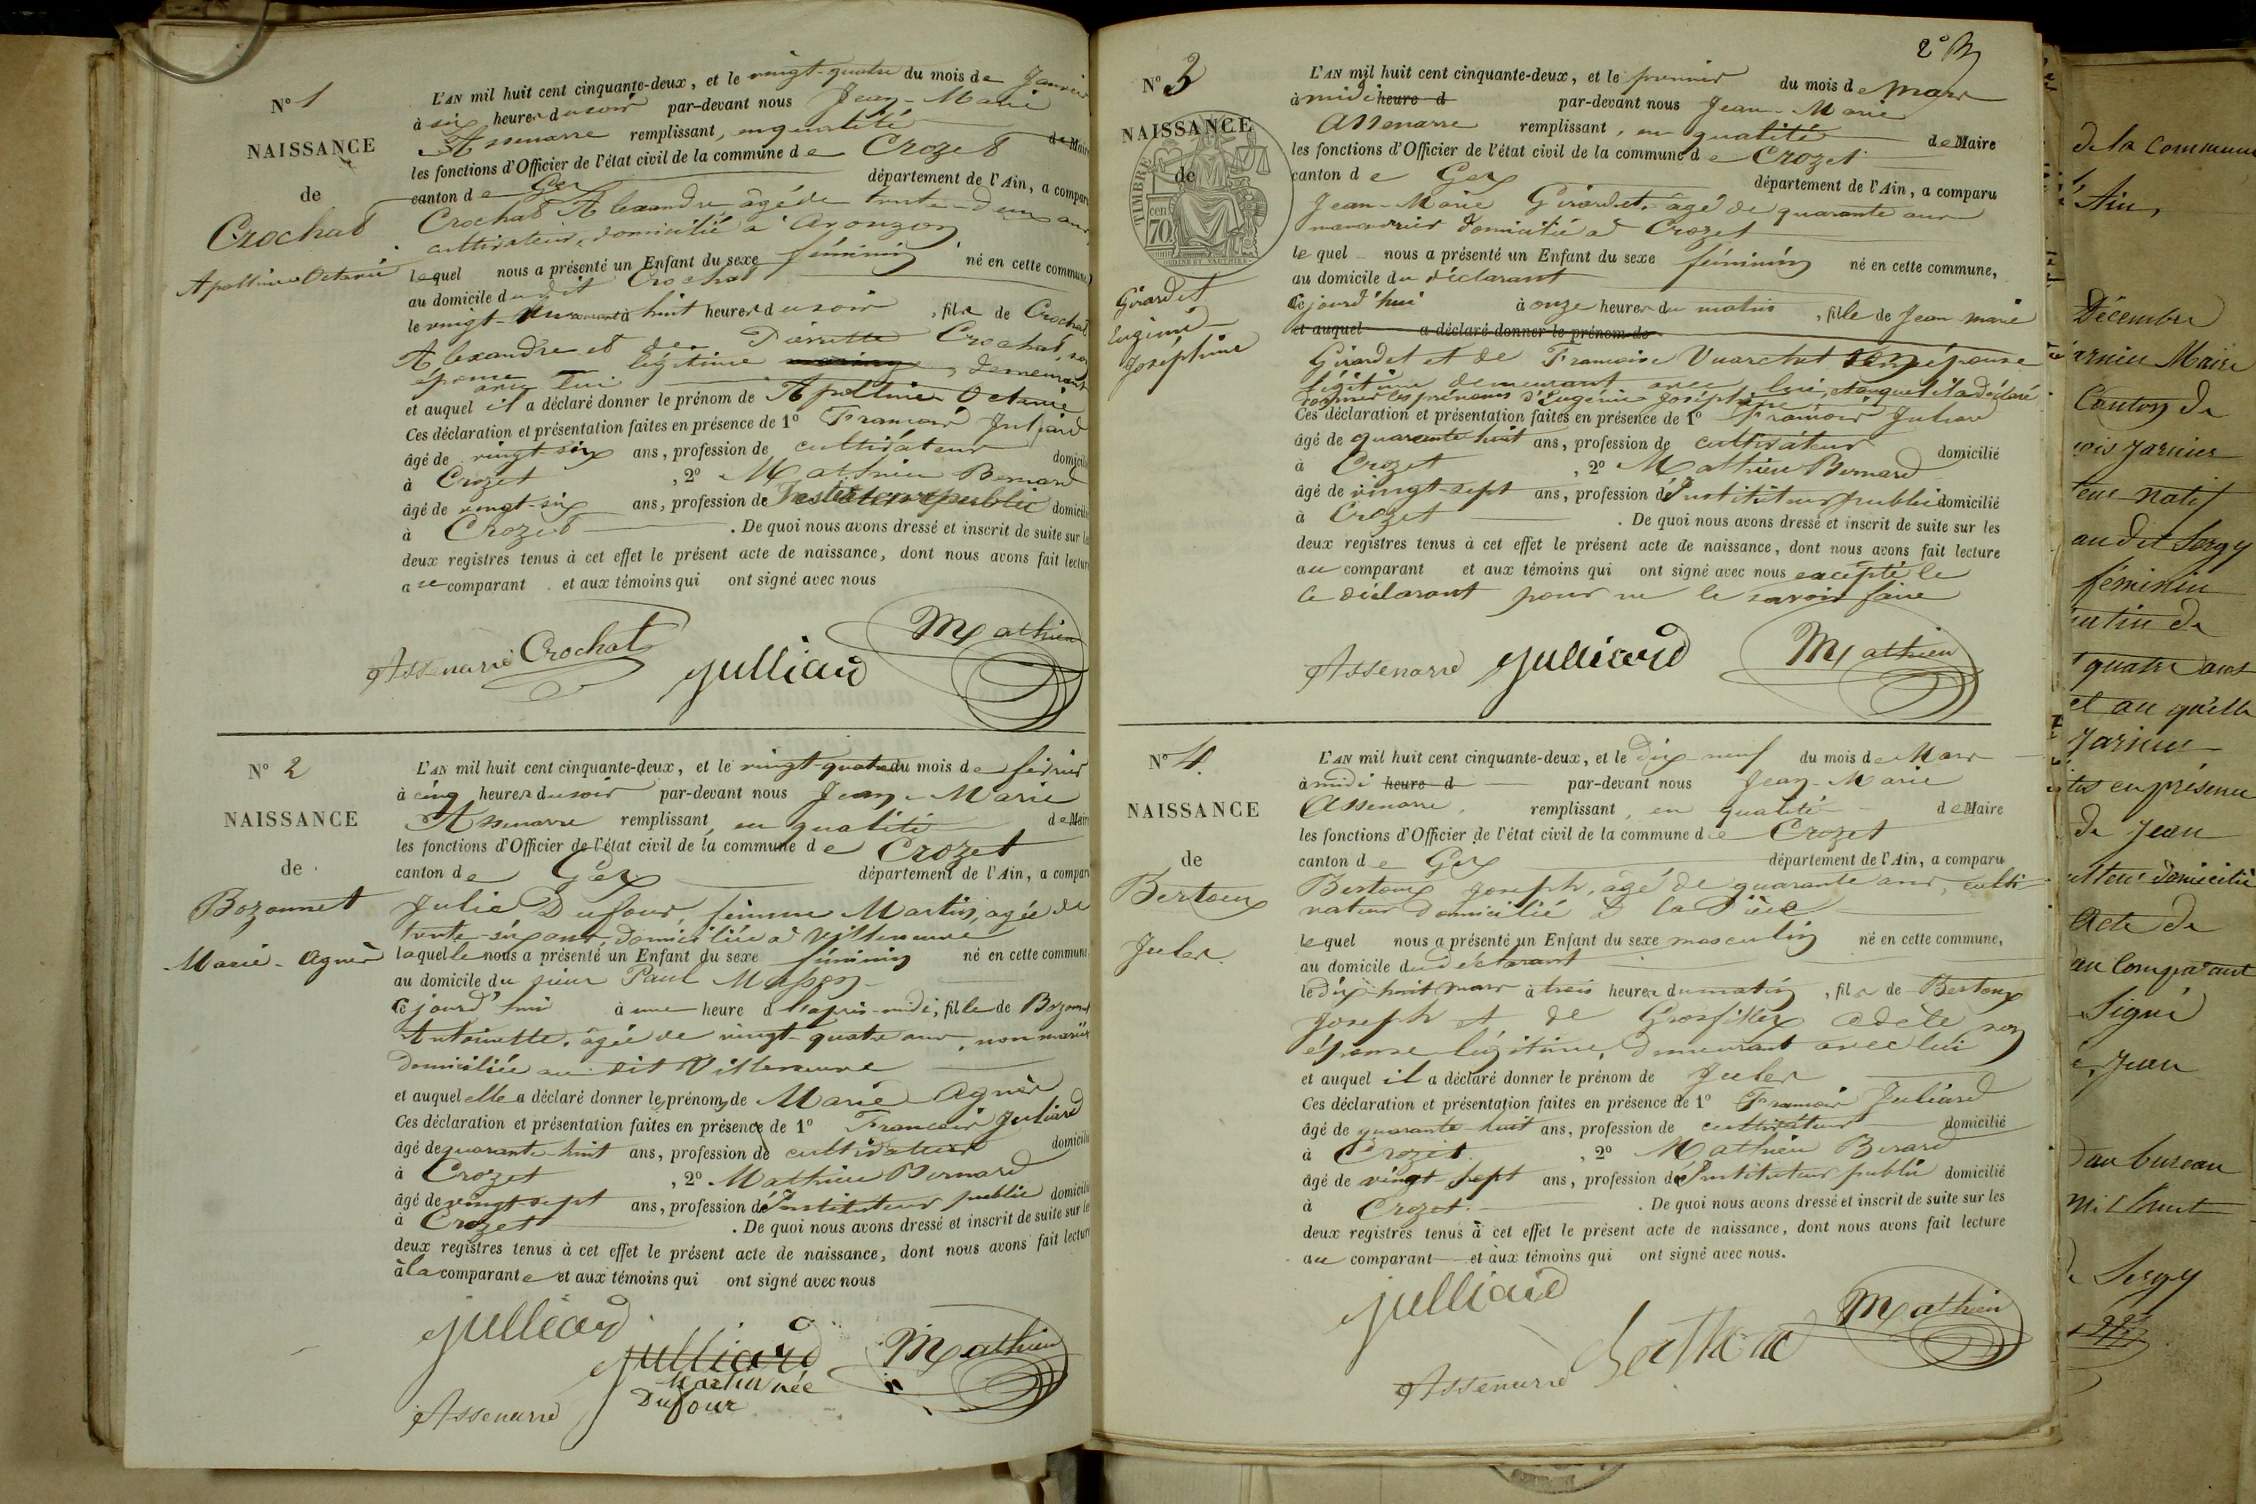 N° 1
NAISSANCE
de
Crochat
Apolline Octavie
L'AN mil huit cent cinquante-deux, et le vingt-quatre du mois de Janvier
à six heures du soir par-devant nous Jean-Marie
Assenarre remplissant, en qualité de Maire
les fonctions d'Officier de l'état civil de la commune de Crozet
canton de Gex département de l'Ain, a comparu
Crochat Alexandre âgé de trente-deux ans
cultivateur, domicilié à Avouzon
lequel nous a présenté un Enfant du sexe féminin né en cette commune,
au domicile dudit Crochat
le vingt-deux à huit heures du soir, fille de Crochat
Alexandre et de Pierrette Crochat, son
épouse légitime demeurant
avec lui
et auquel il a déclaré donner le prénom de Apolline Octavie
Ces déclaration et présentation faites en présence de 1° François Juliard
âgé de vingt-six ans, profession de cultivateur domicilié
à Crozet, 2° Mathieu Bernard
âgé de vingt-six ans, profession de Instituteur public domicilié
à Crozet. De quoi nous avons dressé et inscrit de suite sur les
deux registres tenus à cet effet le présent acte de naissance, dont nous avons fait lecture
au comparant et aux témoins qui ont signé avec nous
Assenarre Crochat Julliard Mathieu
N° 2
NAISSANCE
de
Bozonnet
Marie-Agnès
L'AN mil huit cent cinquante-deux, et le vingt-quatre du mois de février
à cinq heures du soir par-devant nous Jean-Marie
Assenarre remplissant, en qualité de Maire
les fonctions d'Officier de l'état civil de la commune de Crozet
canton de Gex département de l'Ain, a comparu
Julie Dufour, femme Martin, agée de
trente-six ans, domiciliée à Villeneuve
laquelle nous a présenté un Enfant du sexe féminin né en cette commune
au domicile du sieur Paul Masson
ce jourd'hui à une heure d l'après-midi, fille de Bozonnet
Antoinette, âgée de vingt-quatre ans, non mariée
domiciliée au dit Villeneuve
et auquel elle a déclaré donner les prénoms de Marie Agnès
Ces déclaration et présentation faites en présence de 1° François Juliard
âgé de quarante-huit ans, profession de cultivateur domicilié
à Crozet, 2° Mathieu Bernard
âgé de vingt-sept ans, profession d'Instituteur public domicilié
à Crozet. De quoi nous avons dressé et inscrit de suite sur les
deux registres tenus à cet effet le présent acte de naissance, dont nous avons fait lecture
à la comparante et aux témoins qui ont signé avec nous
Julliard
Julliard Mathieu
Martin née
Assenarre Dufour
2°
N° 3
NAISSANCE
de
TIMBRE
70 cen
Girardet
Eugénie
Joséphine
L'AN mil huit cent cinquante-deux, et le premier du mois de Mars
à midi heure d par-devant nous Jean-Marie
Assenarre remplissant, en qualité de Maire
les fonctions d'Officier de l'état civil de la commune de Crozet
canton de Gex département de l'Ain, a comparu
Jean-Marie Girardet, âgé de quarante ans
manouvrier domicilié à Crozet
lequel nous a présenté un Enfant du sexe féminin né en cette commune,
au domicile du déclarant
ce jourd'hui à onze heures du matin, fille de Jean marie
et auquel a déclaré donner le prénom de
Girardet et de Françoise Vuarchet son épouse
légitime demeurant avec lui, et auquel il a déclaré
donner les prénoms d'Eugénie Joséphine
Ces déclaration et présentation faites en présence de 1° François Juliard
âgé de quarante huit ans, profession de cultivateur domicilié
à Crozet, 2° Mathieu Bernard
âgé de vingt-sept ans, profession d'Instituteur public domicilié
à Crozet. De quoi nous avons dressé et inscrit de suite sur les
deux registres tenus à cet effet le présent acte de naissance, dont nous avons fait lecture
au comparant et aux témoins qui ont signé avec nous excepté le
le déclarant pour ne le savoir faire
Assenarre Julliard Mathieu
N° 4
NAISSANCE
de
Bertoux
Jules
L'AN mil huit cent cinquante-deux, et le dix neuf du mois de Mars
à midi heure d par-devant nous Jean-Marie
Assenarre, remplissant, en qualité de Maire
les fonctions d'Officier de l'état civil de la commune de Crozet
canton de Gex département de l'Ain, a comparu
Bertoux Joseph, âgé de quarante ans, culti-
vateur domicilié à
lequel nous a présenté un Enfant du sexe masculin né en cette commune,
au domicile du déclarant
le dix-huit mars à trois heures du matin, fils de Bertoux
Joseph et de Grosfilley Adèle son
épouse légitime, demeurant avec lui
et auquel il a déclaré donner le prénom de Jules
Ces déclaration et présentation faites en présence de 1° François Juliard
âgé de quarante-huit ans, profession de cultivateur domicilié
à Crozet, 2° Mathieu Berard
âgé de vingt sept ans, profession d'Instituteur public domicilié
à Crozet. De quoi nous avons dressé et inscrit de suite sur les
deux registres tenus à cet effet le présent acte de naissance, dont nous avons fait lecture
au comparant et aux témoins qui ont signé avec nous.
Julliard
Mathieu
Assenarre
de la Commune
Ain,
Décembre
Maire
Canton de
natif
au dit Sergy
féminin
quatre ans
et au quelle
en présence
de Jean
domicilié
Acte de
au Comparant
Signé
Jean
au bureau
mil huit
Sergy